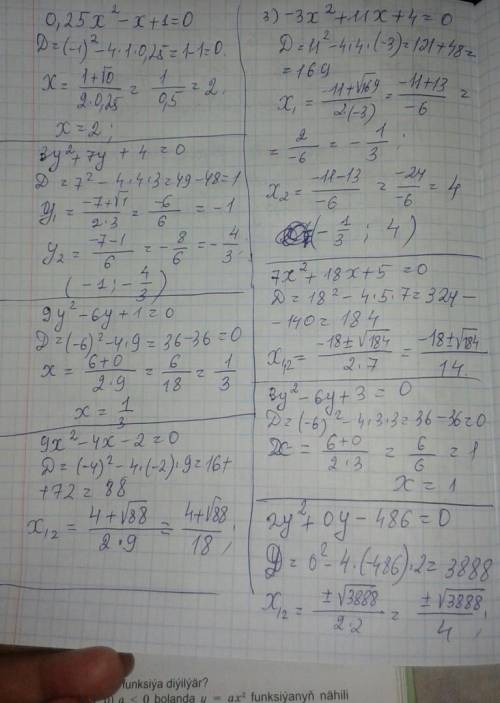 0,25x² - x + 1 = 0
D = (-1)² - 4·1·0,25 = 1-1 = 0.
x = (1+√0)/(2·0,25) = 1/0,5 = 2.
x = 2;
3y² + 7y + 4 = 0
D = 7² - 4·4·3 = 49 - 48 = 1
y₁ = (-7+√1)/(2·3) = -6/6 = -1
y₂ = (-7-1)/6 = -8/6 = -4/3;
(-1; -4/3)
9y² - 6y + 1 = 0
D = (-6)² - 4·9 = 36 - 36 = 0
x = (6+0)/(2·9) = 6/18 = 1/3
x = 1/3
9x² - 4x - 2 = 0
D = (-4)² - 4·(-2)·9 = 16+
+72 = 88
x₁,₂ = (4+√88)/(2·9) = (4+√88)/18;
3) -3x² + 11x + 4 = 0
D = 11² - 4·4·(-3) = 121 + 48 =
= 169
x₁ = (-11+√169)/(2·(-3)) = (-11+13)/(-6) =
= 2/(-6) = -1/3;
x₂ = (-11-13)/(-6) = -24/(-6) = 4
(-1/3; 4)
7x² + 18x + 5 = 0
D = 18² - 4·5·7 = 324 -
- 140 = 184
x₁,₂ = (-18±√184)/(2·7) = (-18±√184)/14
3y² - 6y + 3 = 0
D = (-6)² - 4·3·3 = 36 - 36 = 0
x = (6+0)/(2·3) = 6/6 = 1
x = 1
2y² + 0y - 486 = 0
D = 0² - 4·(-486)·2 = 3888
x₁,₂ = ±√3888/(2·2) = ±√3888/4;
funksiýa diýilýär?
a < 0 bolanda y = ax² funksiýanyň nähili